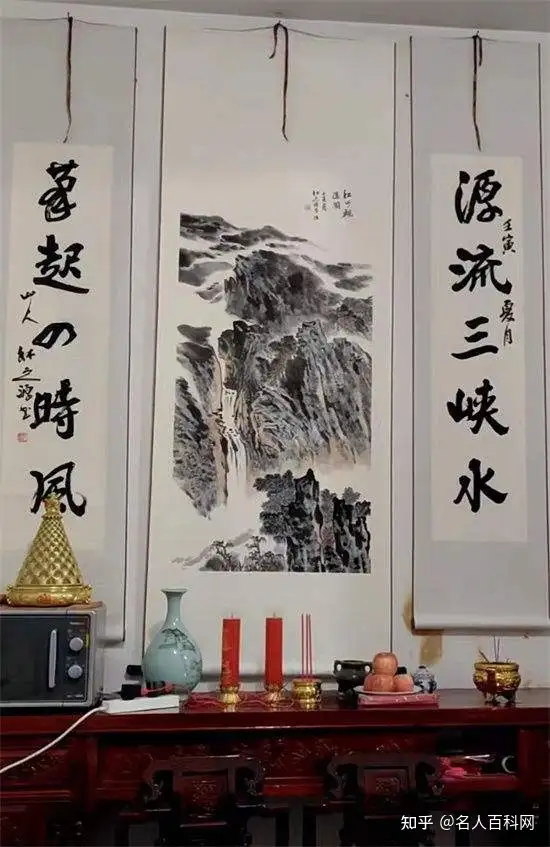 源流三峡水
壬寅夏月
筆起四時風
山人
林之源
知乎 @名人百科网